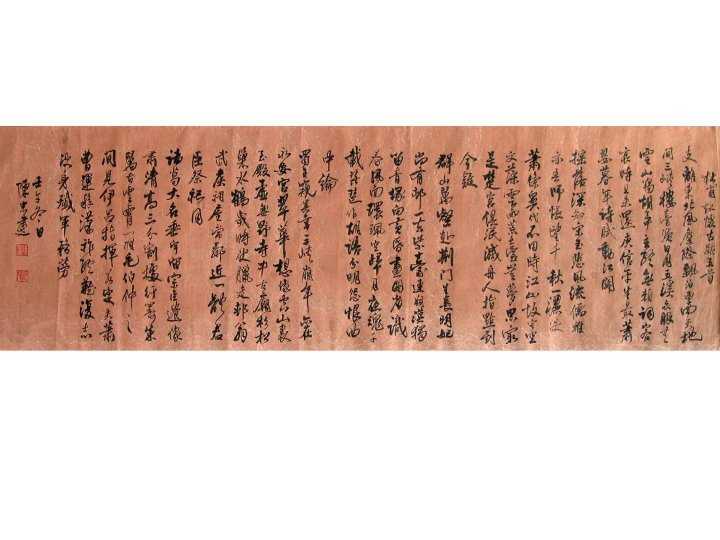 杜甫詠懷古跡五首
支離東北風塵際飄泊西南天地
間三峽樓臺淹日月五溪衣服共
雲山羯胡事主終無賴詞客
哀時且未還庾信平生最蕭
瑟暮年詩賦動江關
搖落深知宋玉悲風流儒雅
亦吾師悵望千秋一灑淚
蕭條異代不同時江山故宅空
文藻雲雨荒臺豈夢思最
是楚宮俱泯滅舟人指點到
今疑
群山萬壑赴荊門生長明妃
尚有村一去紫臺連朔漠獨
留青塚向黃昏畫圖省識
春風面環珮空歸月夜魂千
載琵琶作胡語分明怨恨曲
中論
蜀主窺吳幸三峽崩年亦在
永安宮翠華想像空山裏
玉殿虛無野寺中古廟杉松
巢水鶴歲時伏臘走村翁
武侯祠屋常鄰近一體君
臣祭祀同
諸葛大名垂宇宙宗臣遺像
肅清高三分割據紆籌策
萬古雲霄一羽毛伯仲之
間見伊呂指揮若定失蕭
曹運移漢祚終難復志
決身殲軍務勞
壬午冬日